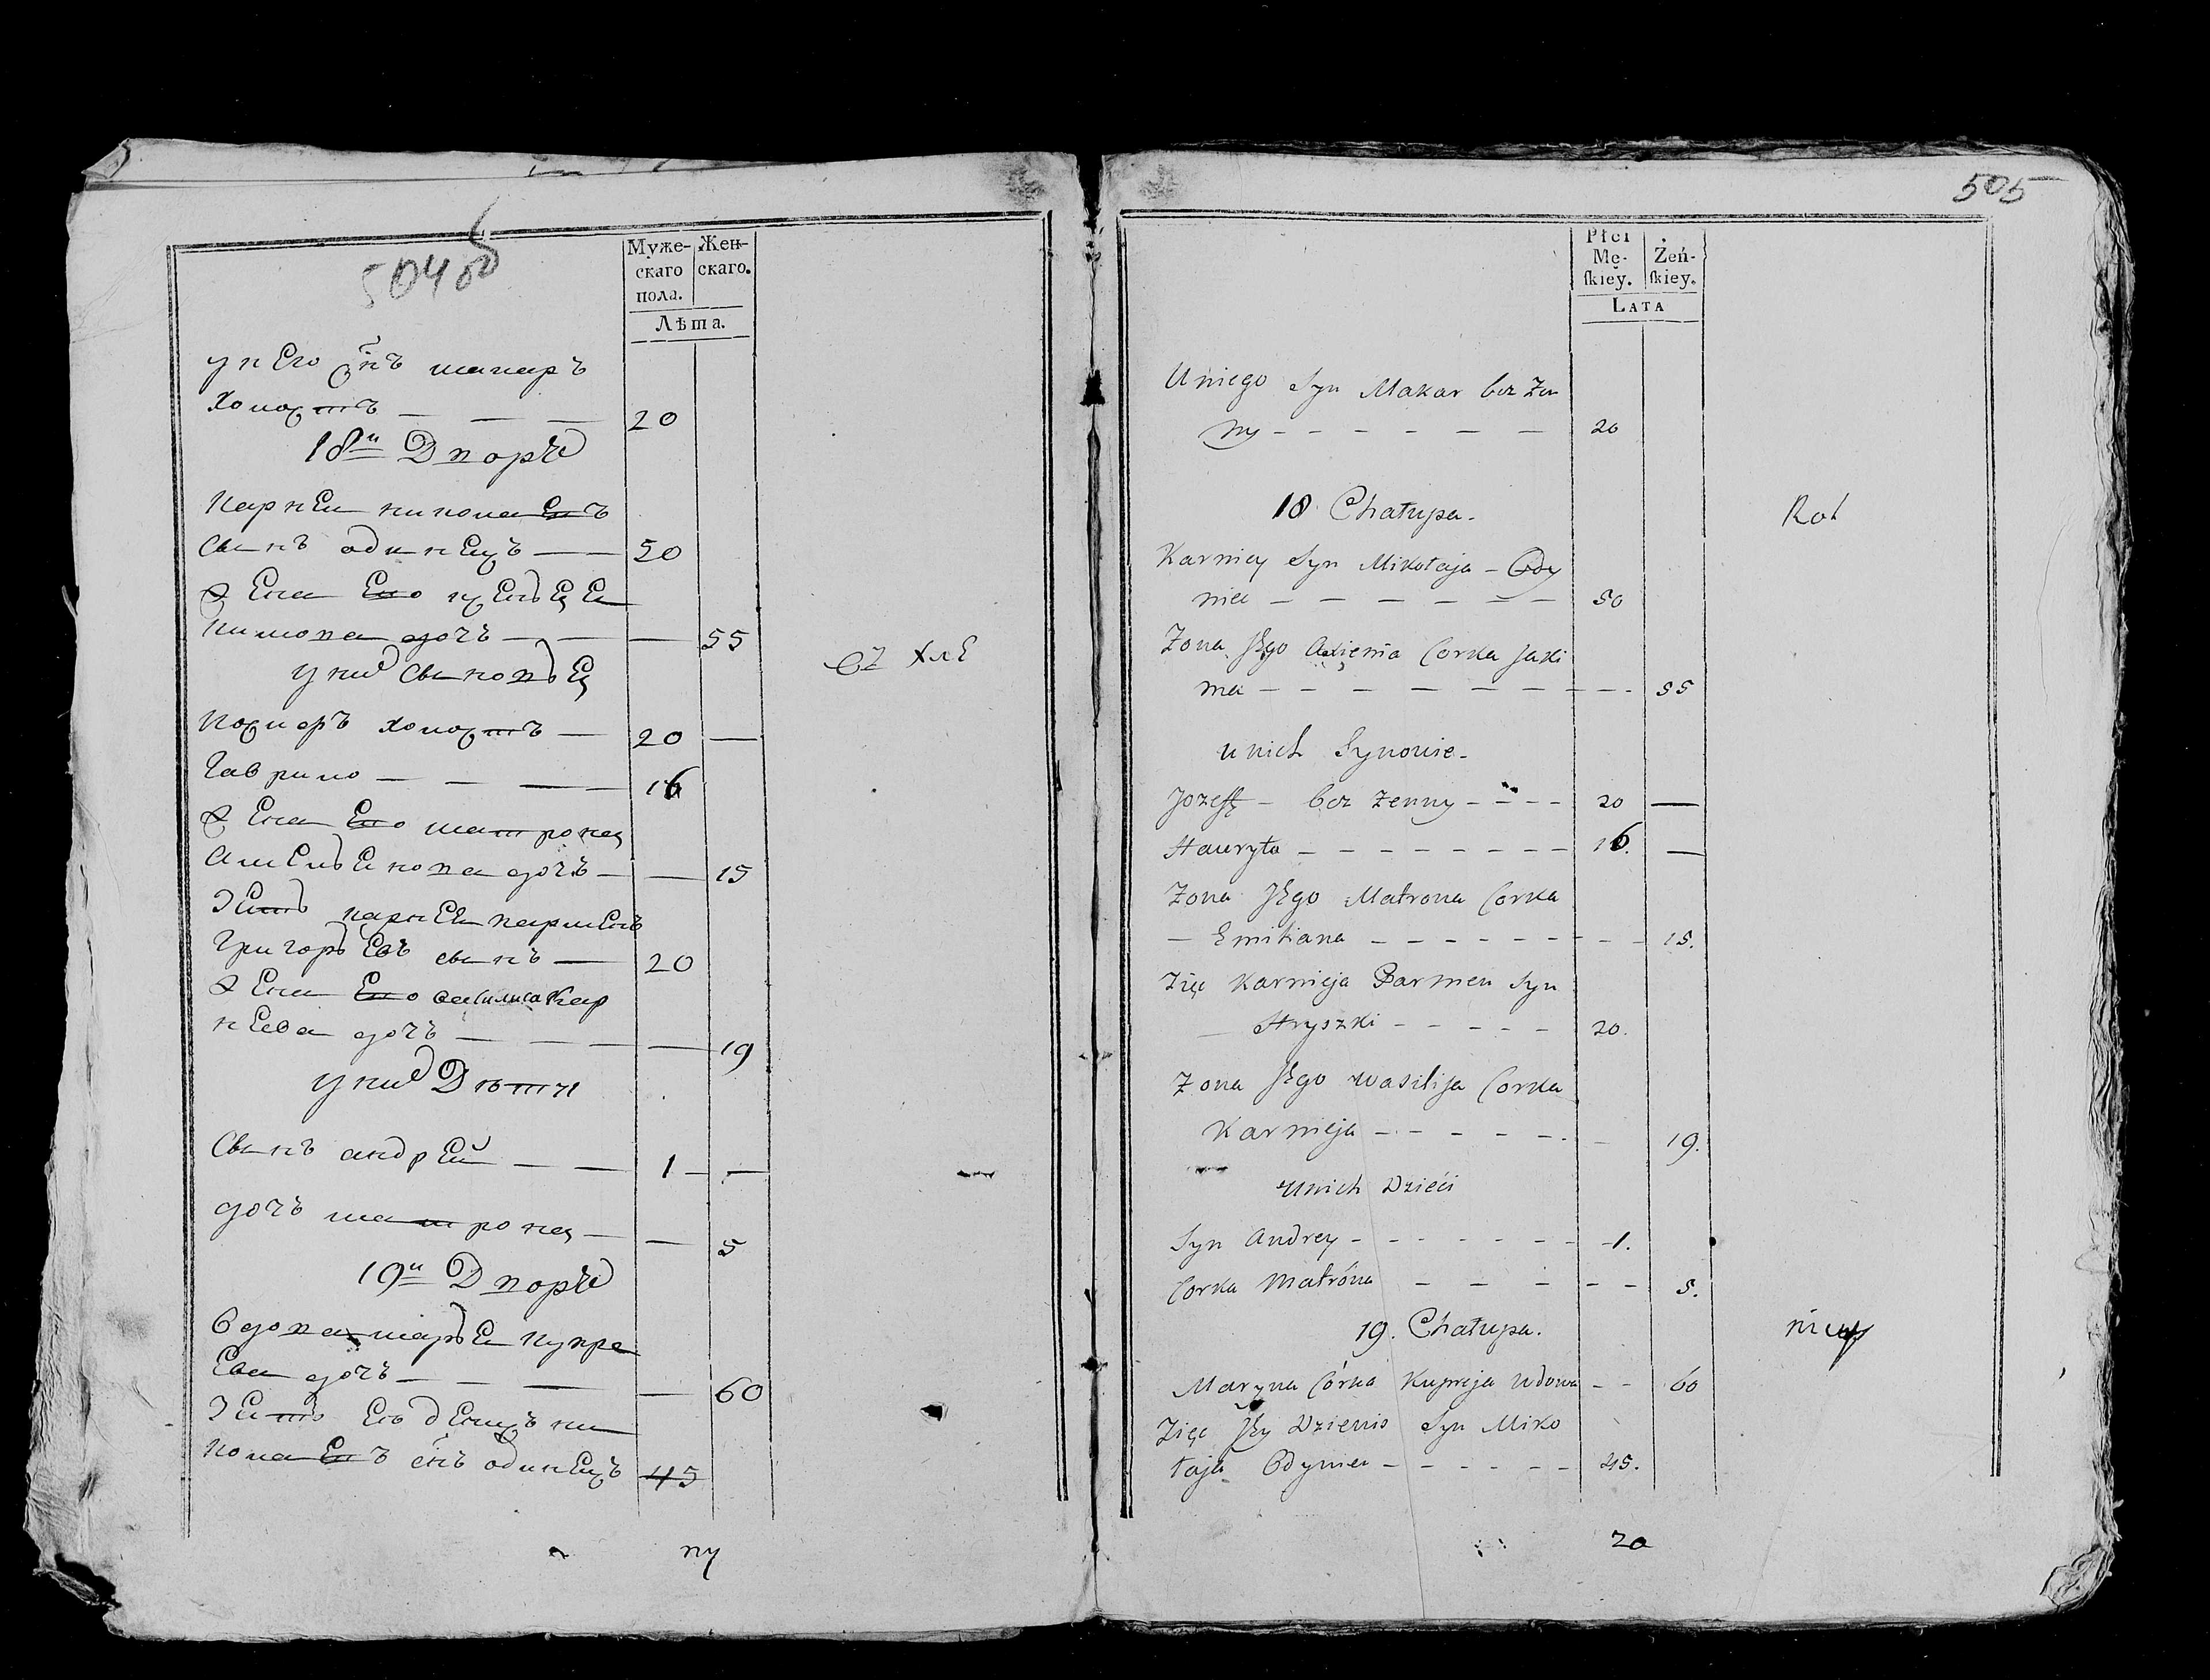 504 об
Муже-
скаго
пола.
Жен-
скаго.
Лѣта.
у него сн҃ъ макаръ
холостъ — — — 20
18й Дворъ
карней николаевъ
сынъ одинецъ — 50
жена ево
кимова дочъ — — 55
у них сыновья
холостъ — 20 —
гаврило — — — 16
жена ево матрона
амельенова дочъ — — 15
зять карнея пармень
григорьевъ сынъ — 20
жена ево василиса кар
неева дочъ — — — 19
у них Дѣти
сынъ андрей — — 1 — —
дочъ матрона — — 5
19й Дворъ
вдова марья купре
ева дочъ — — — 60
зять ея денисъ ни
колаевъ сн҃ъ одинецъ 45
съ хле
ну
505
Płci
Mę-
skiey.
Żeń-
skiey.
LATA
Uniego Syn Makar bez Żen
ny — — — — — — 20
18 Chałupa.
Rol
Karniey Syn Mikołaja — Ody
niec — — — — — — 50
Zona Jego Axienia Corka Jaki
ma — — — — — — — — 55
unich Synowie.
Jozeff — bez Zenny — — — — 20 —
Hauryło — — — — — — — — 16. —
Zona Jego Matrona Corka
— Emiliana — — — — — — — — 15.
Zięć Karnieja Parmen Syn
Hryszki — — — — — 20.
Zona Jego Wasilija Corka
Karnieja — — — — — — 19.
Unich Dzieci
Syn Andrey — — — — — — 1.
Corka Matróna — — — — — 5.
19. Chałupa.
Maryna Córka Kuprieja Wdowa — — 60
Zięć Jey Dzienis Syn Miko
łaja Odyniec — — — — — — 45.
20